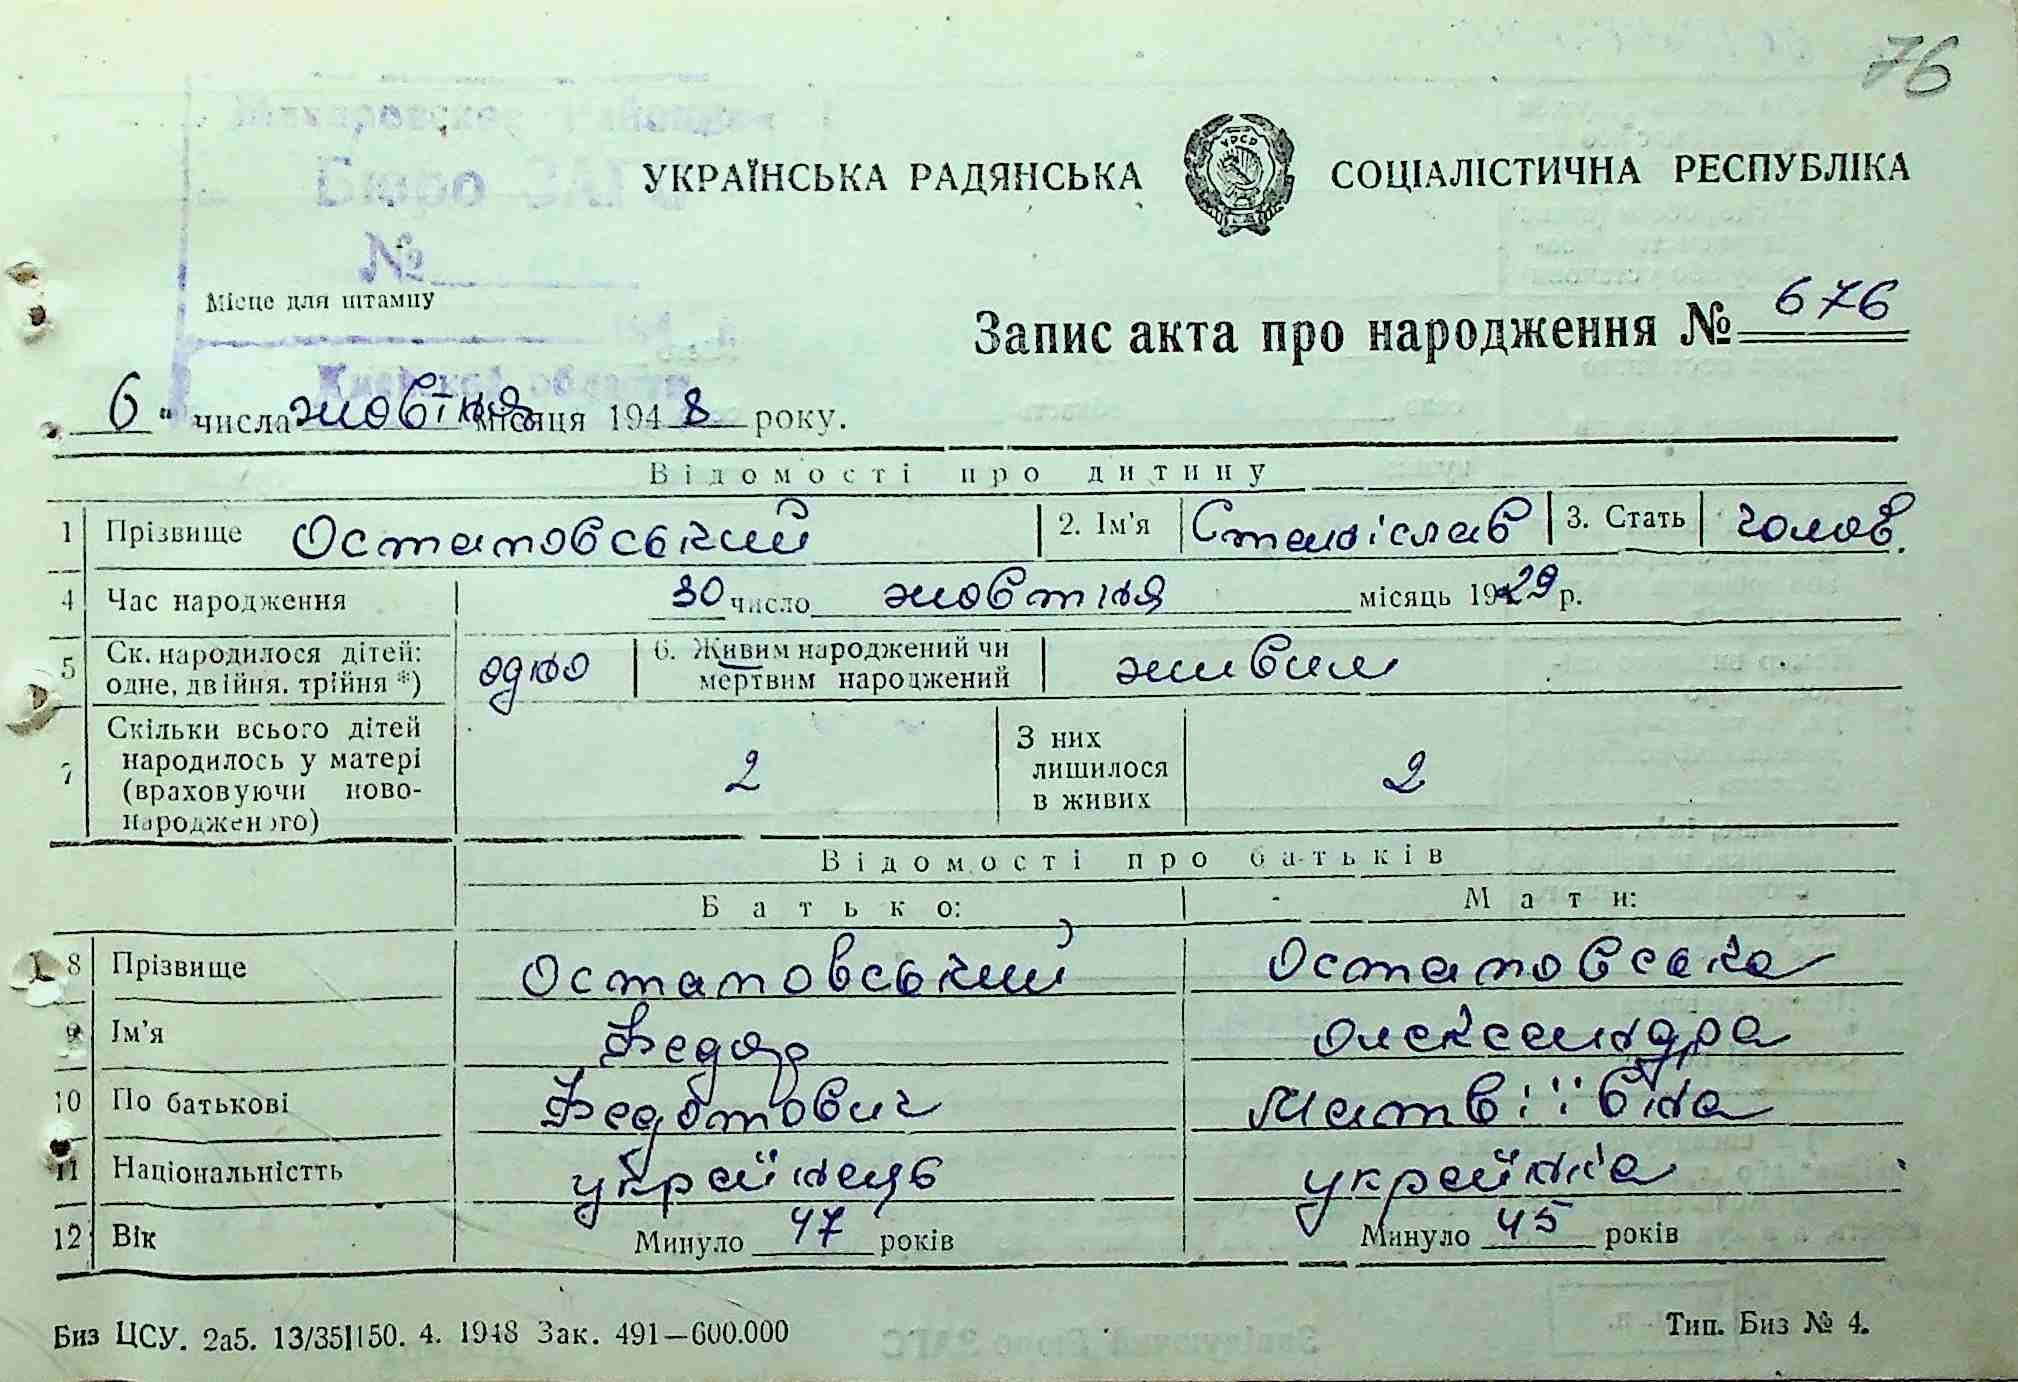 76
Макаровское Районное
Бюро ЗАГС
УКРАЇНСЬКА РАДЯНСЬКА СОЦІАЛІСТИЧНА РЕСПУБЛІКА
УРСР
№
Місце для штампу
Запис акта про народження № 676
Киевской области
6 " числа жовтня місяця 1948 року.
Відомості про дитину
1 Прізвище Остаповський 2. Ім'я Станіслав 3. Стать чолов.
4 Час народження 30 число жовтня місяць 1929 р.
5 Ск. народилося дітей: одне, двійня, трійня *) одно 6. Живим народжений чи мертвим народжений живим
7 Скільки всього дітей народилось у матері (враховуючи ново-народженого) 2 З них лишилося в живих 2
Відомості про батьків
Батько: Мати:
8 Прізвище Остаповський Остаповська
9 Ім'я Федор Олександра
10 По батькові Федотович Матвіївна
11 Національністть українець українка
12 Вік Минуло 47 років Минуло 45 років
Биз ЦСУ. 2а5. 13/351150. 4. 1948 Зак. 491—600.000 Тип. Биз № 4.